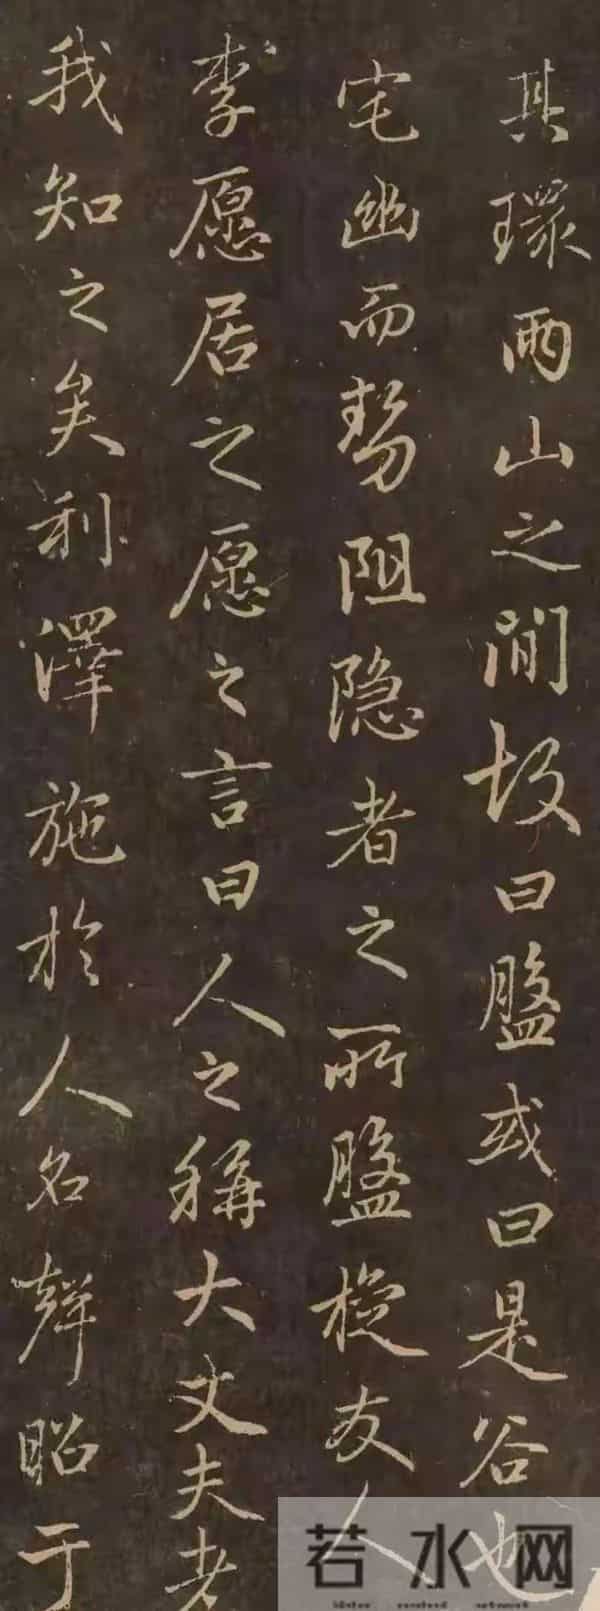 其環兩山之間故曰盤或曰是谷也
宅幽而勢阻隐者之所盤旋友人
李愿居之愿之言曰人之稱大丈夫者
我知之矣利澤施於人名聲昭于
若水网